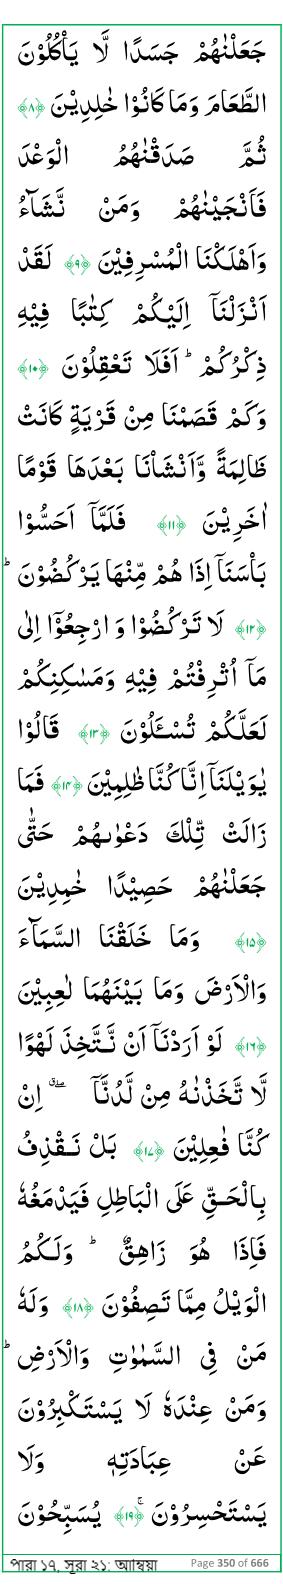 جَعَلْنٰهُمْ جَسَدًا لَّا يَاْكُلُوْنَ
الطَّعَامَ وَمَا كَانُوْا خٰلِدِيْنَ ﴿۸﴾
ثُمَّ صَدَقْنٰهُمُ الْوَعْدَ
فَاَنْجَيْنٰهُمْ وَمَنْ نَّشَآءُ
وَاَهْلَكْنَا الْمُسْرِفِيْنَ ﴿۹﴾ لَقَدْ
اَنْزَلْنَاۤ اِلَيْكُمْ كِتٰبًا فِيْهِ
ذِكْرُكُمْ ؕ اَفَلَا تَعْقِلُوْنَ ﴿۱۰﴾
وَكَمْ قَصَمْنَا مِنْ قَرْيَةٍ كَانَتْ
ظَالِمَةً وَّاَنْشَاْنَا بَعْدَهَا قَوْمًا
اٰخَرِيْنَ ﴿۱۱﴾ فَلَمَّاۤ اَحَسُّوْا
بَاْسَنَاۤ اِذَا هُمْ مِّنْهَا يَرْكُضُوْنَ ؕ
﴿۱۲﴾ لَا تَرْكُضُوْا وَ ارْجِعُوْۤا اِلٰى
مَاۤ اُتْرِفْتُمْ فِيْهِ وَمَسٰكِنِكُمْ
لَعَلَّكُمْ تُسْـَٔلُوْنَ ﴿۱۳﴾ قَالُوْا
يٰوَيْلَنَاۤ اِنَّا كُنَّا ظٰلِمِيْنَ ﴿۱۴﴾ فَمَا
زَالَتْ تِّلْكَ دَعْوٰىهُمْ حَتّٰى
جَعَلْنٰهُمْ حَصِيْدًا خٰمِدِيْنَ
﴿۱۵﴾ وَمَا خَلَقْنَا السَّمَآءَ
وَالْاَرْضَ وَمَا بَيْنَهُمَا لٰعِبِيْنَ
﴿۱۶﴾ لَوْ اَرَدْنَاۤ اَنْ نَّتَّخِذَ لَهْوًا
لَّا تَّخَذْنٰهُ مِنْ لَّدُنَّاۤ ۖق اِنْ
كُنَّا فٰعِلِيْنَ ﴿۱۷﴾ بَلْ نَقْذِفُ
بِالْحَقِّ عَلَى الْبَاطِلِ فَيَدْمَغُهٗ
فَاِذَا هُوَ زَاهِقٌ ؕ وَلَكُمُ
الْوَيْلُ مِمَّا تَصِفُوْنَ ﴿۱۸﴾ وَلَهٗ
مَنْ فِى السَّمٰوٰتِ وَالْاَرْضِ ؕ
وَمَنْ عِنْدَهٗ لَا يَسْتَكْبِرُوْنَ
عَنْ عِبَادَتِهٖ وَلَا
يَسْتَحْسِرُوْنَ ۚ﴿۱۹﴾ يُسَبِّحُوْنَ
পারা ১৭, সূরা ২১: আম্বিয়া Page 350 of 666